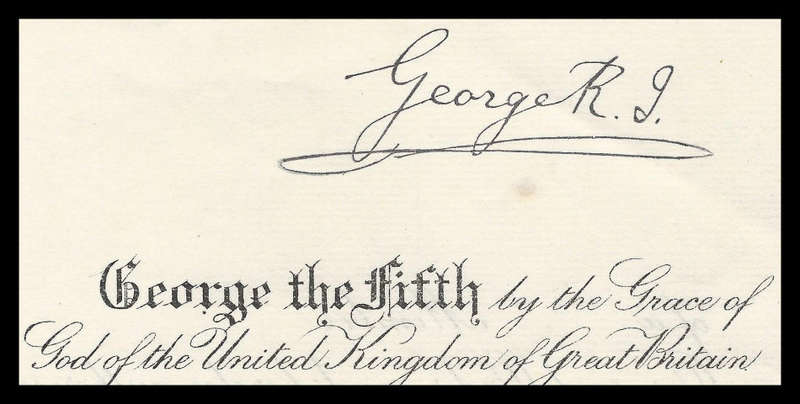 George R. I.
George the Fifth by the Grace of
God of the United Kingdom of Great Britain